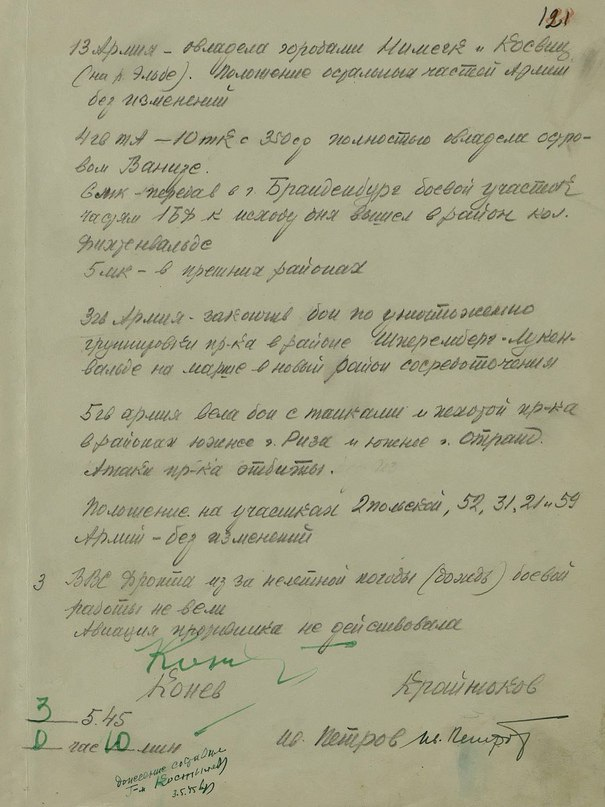 121
13 Армия – овладела городами Нимегк и Косвиг
(на р. Эльбе). Положение остальных частей Армии
без изменений
4 гв ТА – 10 тк с 350 сд полностью овладела остро-
вом Ванзе.
6 мк – передав в г. Бранденбург боевой участок
частям 1БФ к исходу дня вышел в район кол.
Фихтенвальде
5 мк – в прежних районах
3 гв Армия – закончив бои по уничтожению
группировки пр-ка в районе Шперемберг - Лукен-
вальде на марше в новый район сосредоточения
5 гв армия вела бои с танками и пехотой пр-ка
в районах южнее г. Риза и южнее г.
Атаки пр-ка отбиты.
Положение на участках 2 польской, 52, 31, 21 и 59
Армий – без изменений
3 ВВС Фронта из за нелетной погоды (дождь) боевой
работы не вели
Авиация противника не действовала
Конев Крайнюков
3 5.45
0 час 10 мин ив. Петров ив. Петров
донесение
Г-м
3.5.45